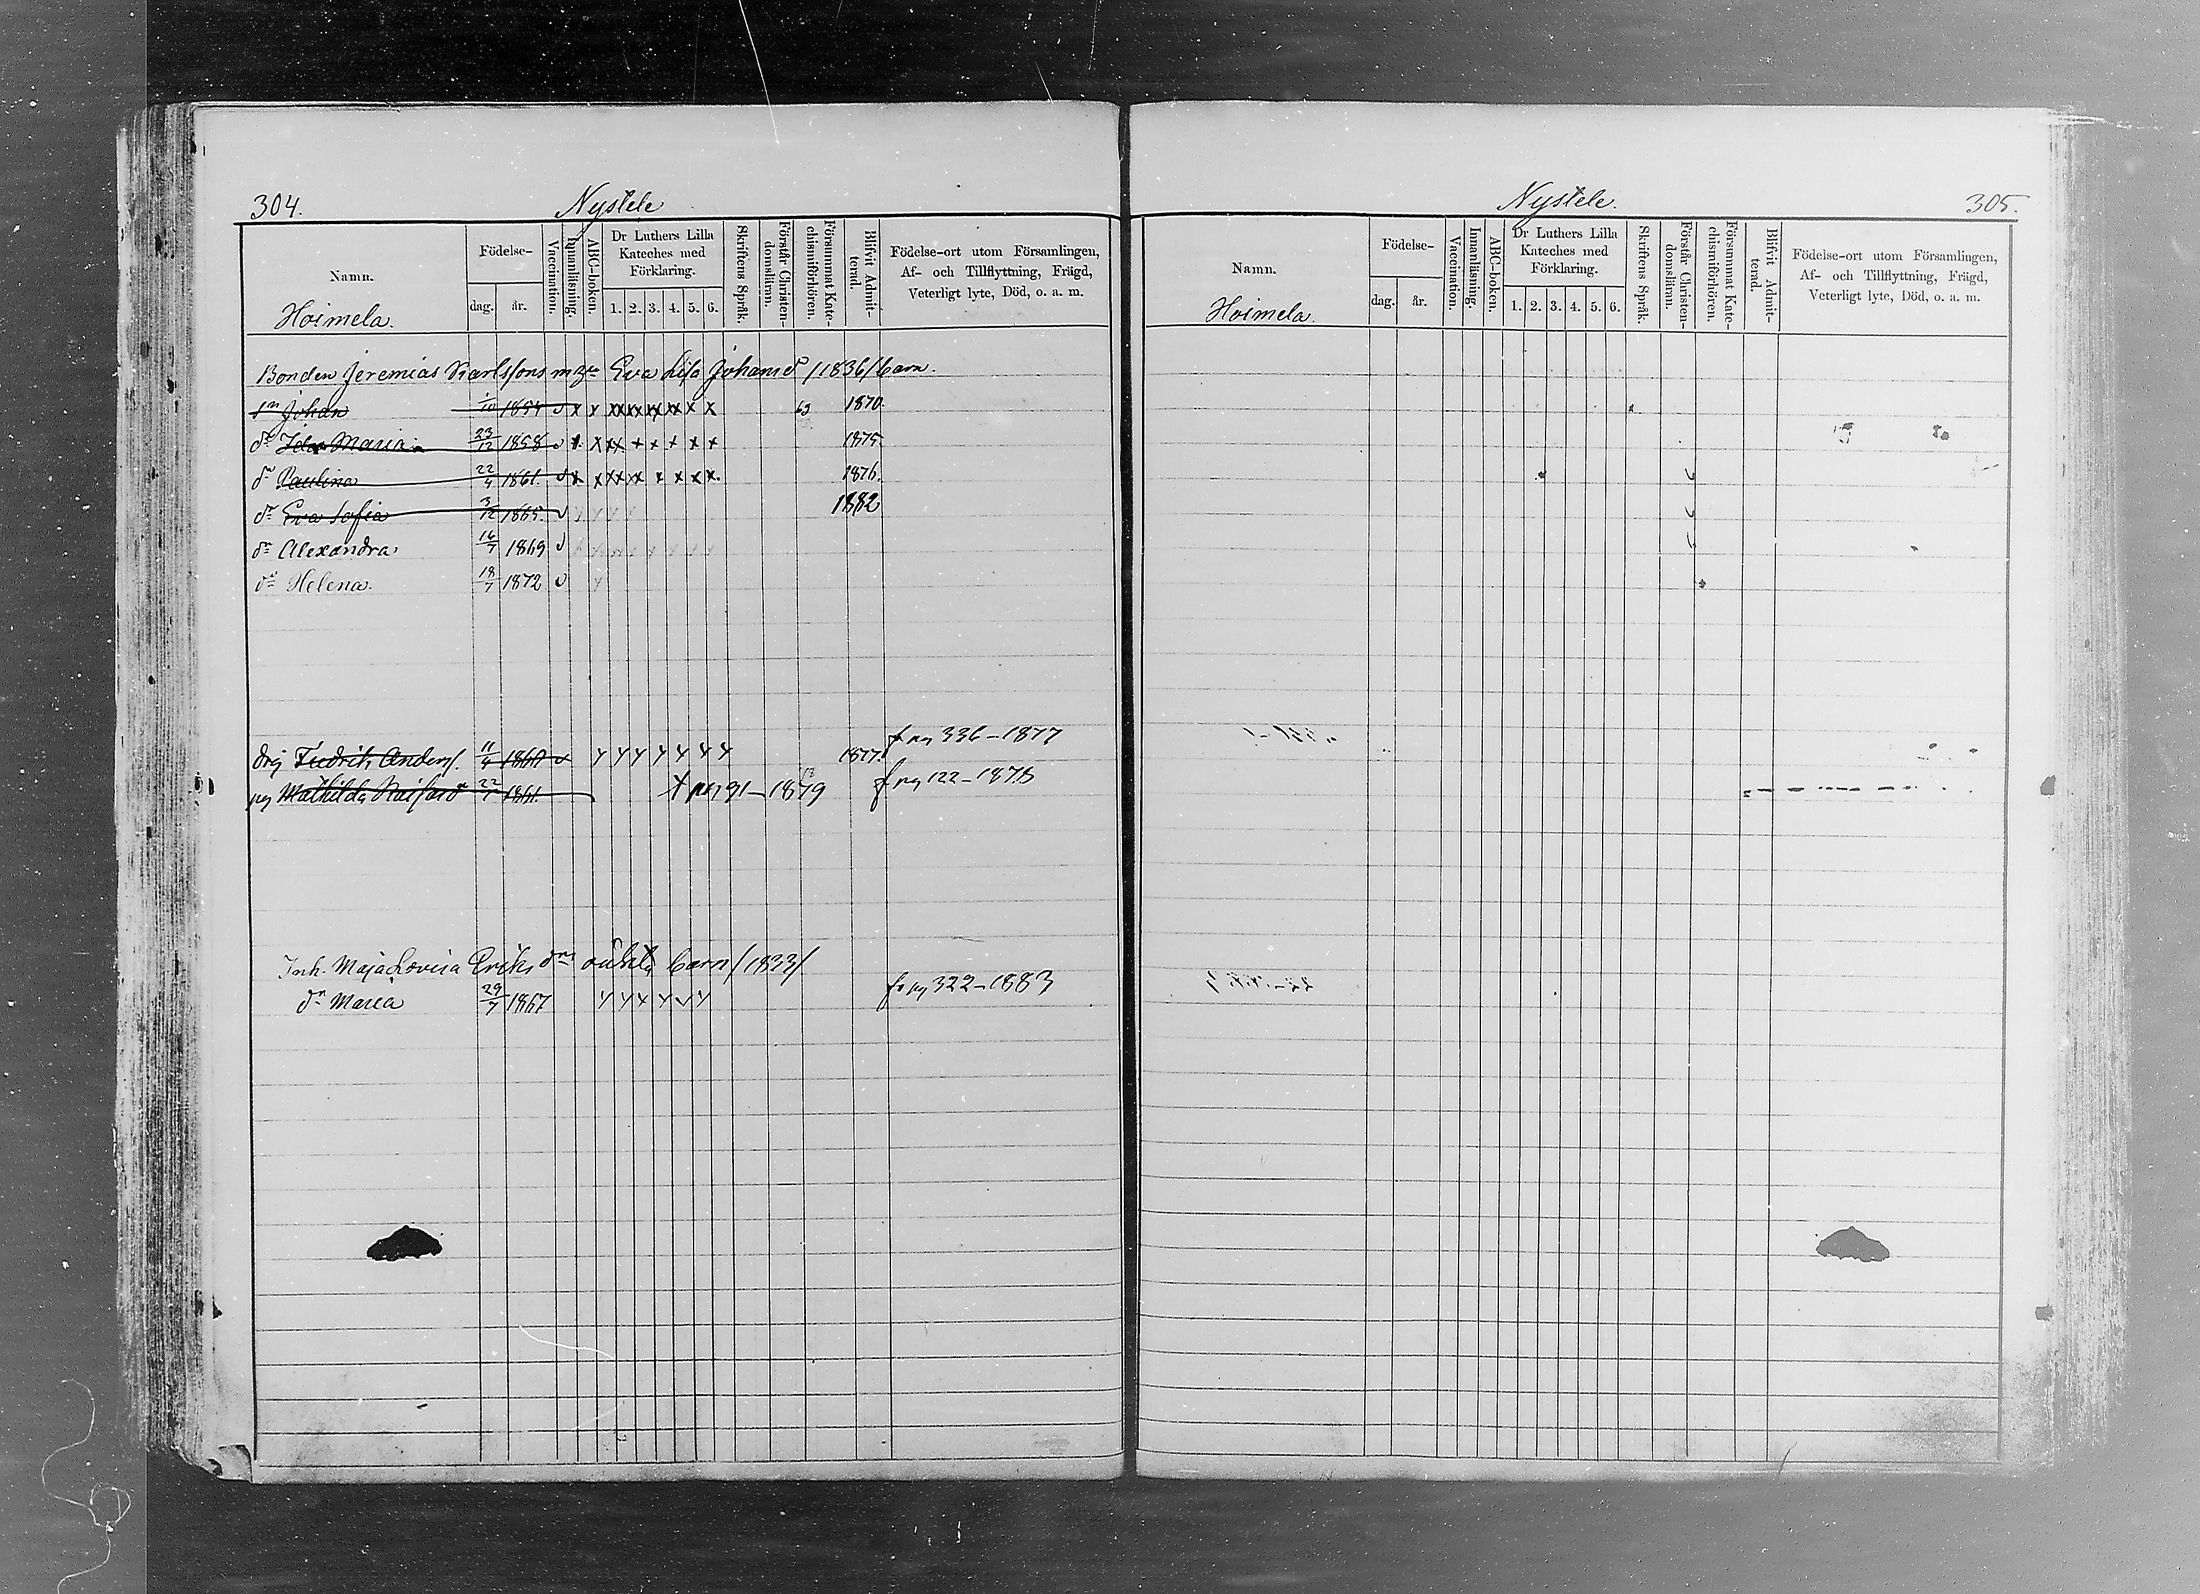 304.
Nystele
Namn.
Födelse-
dag.
år.
Vaccination.
Innanläsning.
ABC-boken.
Dr Luthers Lilla
Kateches med
Förklaring.
1. 2. 3. 4. 5. 6.
Skriftens Språk.
Förstår Christen-
domsläran.
Försummat Kate-
chismiförhören.
Blifvit Admit-
terad.
Födelse-ort utom Församlingen,
Af- och Tillflyttning, Frägd,
Veterligt lyte, Död, o. a. m.
Hoimela.
Bonden Jeremias Karlssons m Eva Lisa Johansdr /1836/ barn
sn Johan 1/10 1854 v x x xx xx xx xx x x 69 1870.
dr Ida Maria 23/12 1858 v x x xx + x + x + 1875
dr Paulina 22/4 1861. v x x xx xx x x x x. 1876.
dr Eva Sofia 3/12 1865. v 1882
dr Alexandra 16/7 1869 v
dr Helena. 18/7 1872 v
drg Fredrik Anders. 11/4 1860 v y y y y y y y 1877. f pg 336-1877
pg Mathilda 22/1 1861. t pg 91-1879 f pg 122-1878
Inh. Maja Lovisa Eriks drs oäkta barn /1833/
dr Maria 29/7 1867 y y x y y y fr pg 322-1883
Nystele.
305.
Namn.
Födelse-
dag.
år.
Vaccination.
Innanläsning.
ABC-boken.
Dr Luthers Lilla
Kateches med
Förklaring.
1. 2. 3. 4. 5. 6.
Skriftens Språk.
Förstår Christen-
domsläran.
Försummat Kate-
chismiförhören.
Blifvit Admit-
terad.
Födelse-ort utom Församlingen,
Af- och Tillflyttning, Frägd,
Veterligt lyte, Död, o. a. m.
Hoimela.